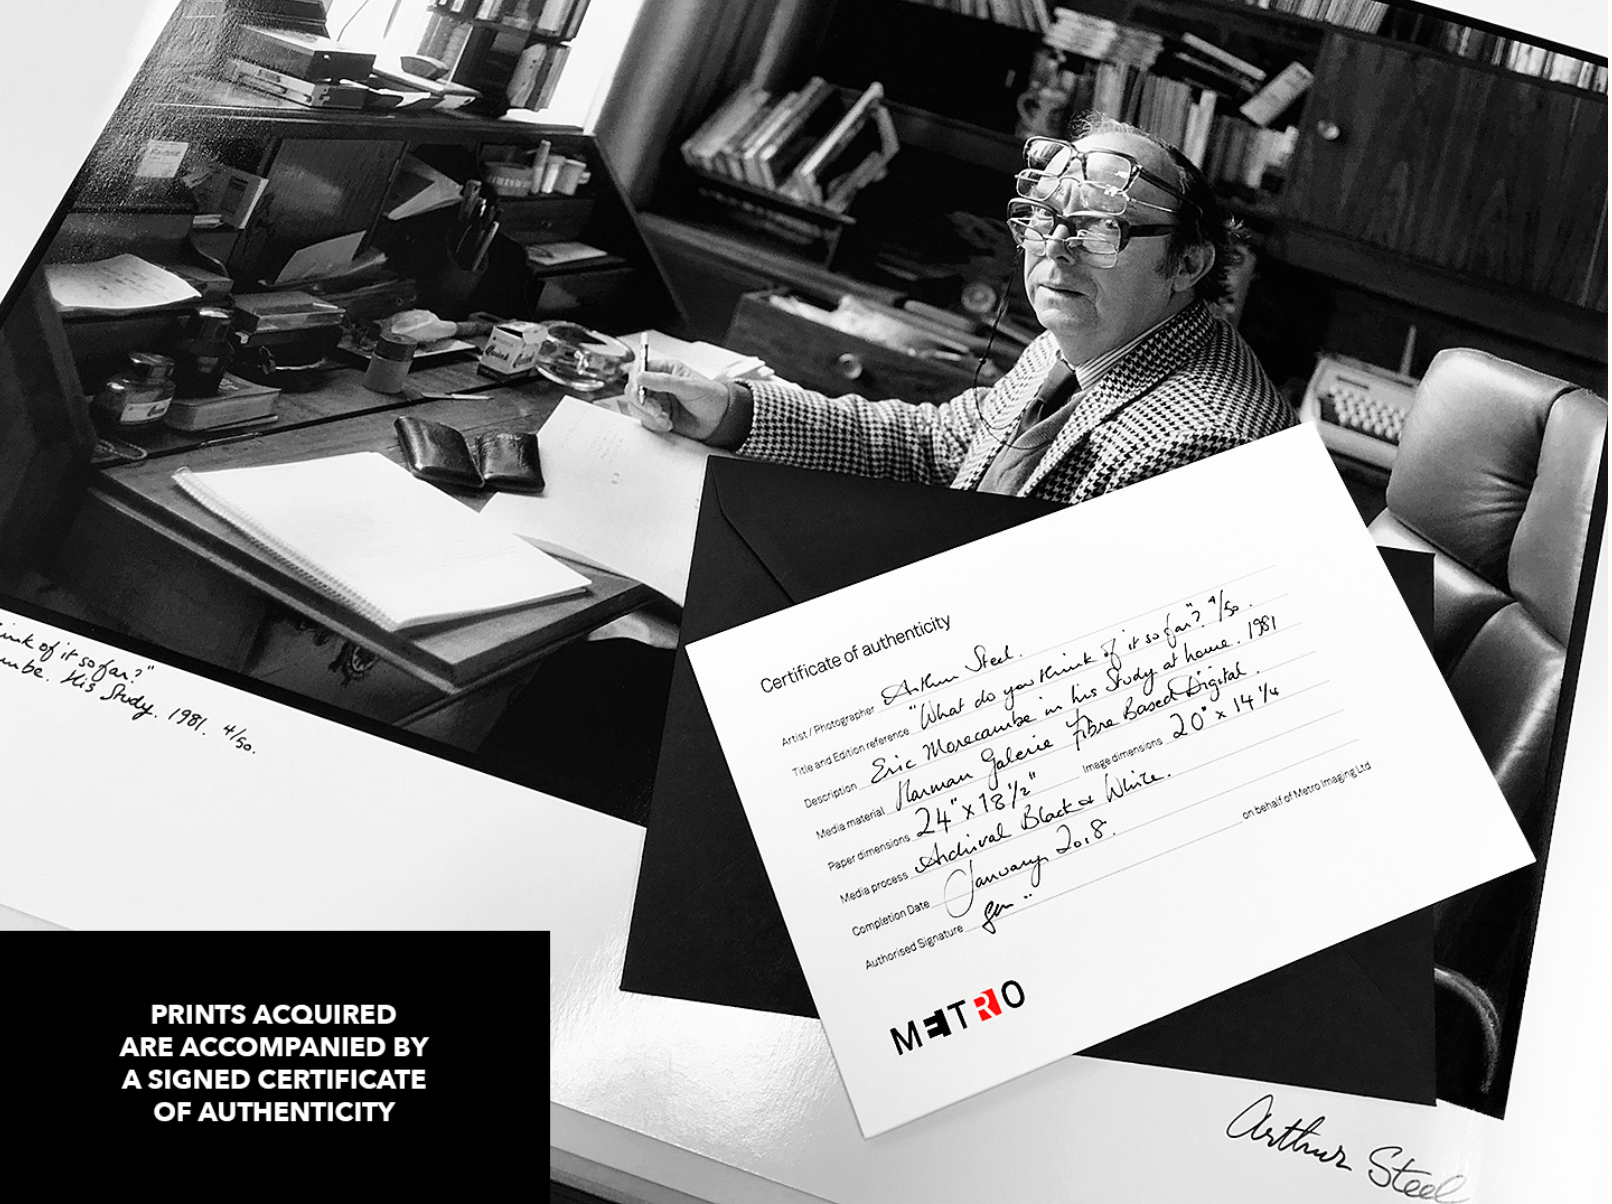 Quink
ink of it so far?"
mbe. His Study. 1981. 4/50.
Certificate of authenticity
Artist / Photographer Arthur Steel.
Title and Edition reference "What do you think of it so far"? 4/50.
Description Eric Morecambe in his Study at home. 1981
Media material Harman Galerie Fibre Based Digital.
Paper dimensions 24" x 18 1/2" Image dimensions 20" x 14 1/4
Media process Archival Black & White.
Completion Date January 2018.
Authorised Signature on behalf of Metro Imaging Ltd
METRO
Arthur Steel
PRINTS ACQUIRED
ARE ACCOMPANIED BY
A SIGNED CERTIFICATE
OF AUTHENTICITY